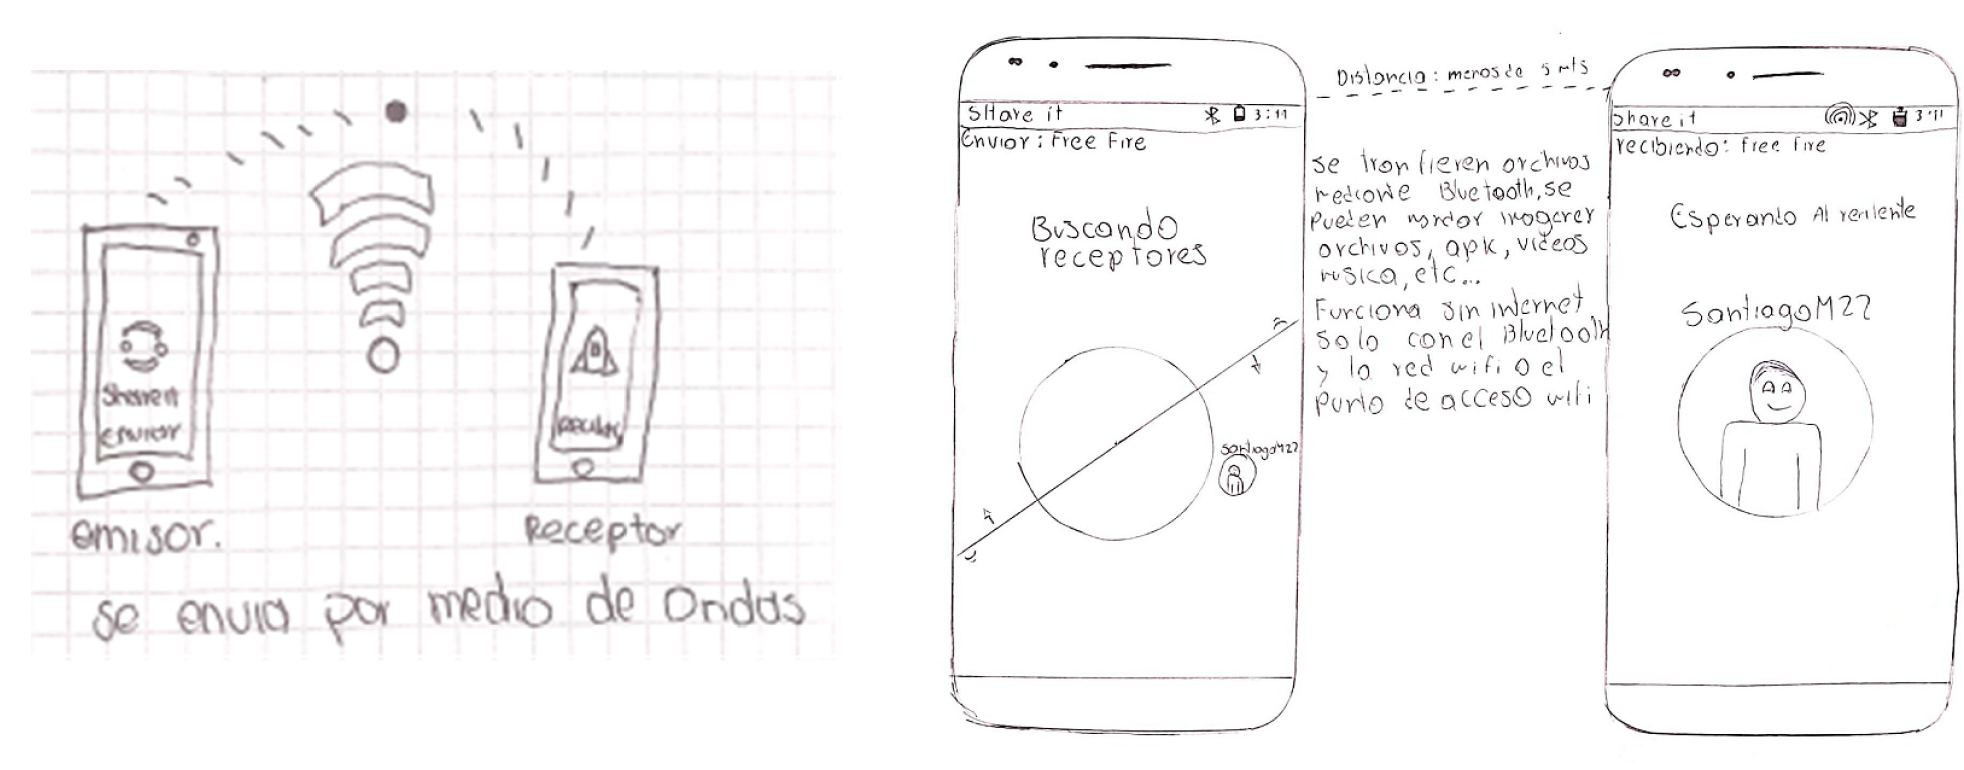 Share it
enviar
emisor.
Receptor
se envia por medio de ondas
SHare it 3:11
Enviar: Free Fire
Buscando
receptores
SantiagoM22
Distancia: menos de 5 mts
se tranfieren archivos
mediante Bluetooth, se
Pueden mandar imagenes
archivos, apk, videos
musica, etc...
Funciona sin internet
solo con el Bluetooth
y la red wifi o el
punto de acceso wifi
Share it 3:11
recibiendo: free fire
Esperando Al
SantiagoM22